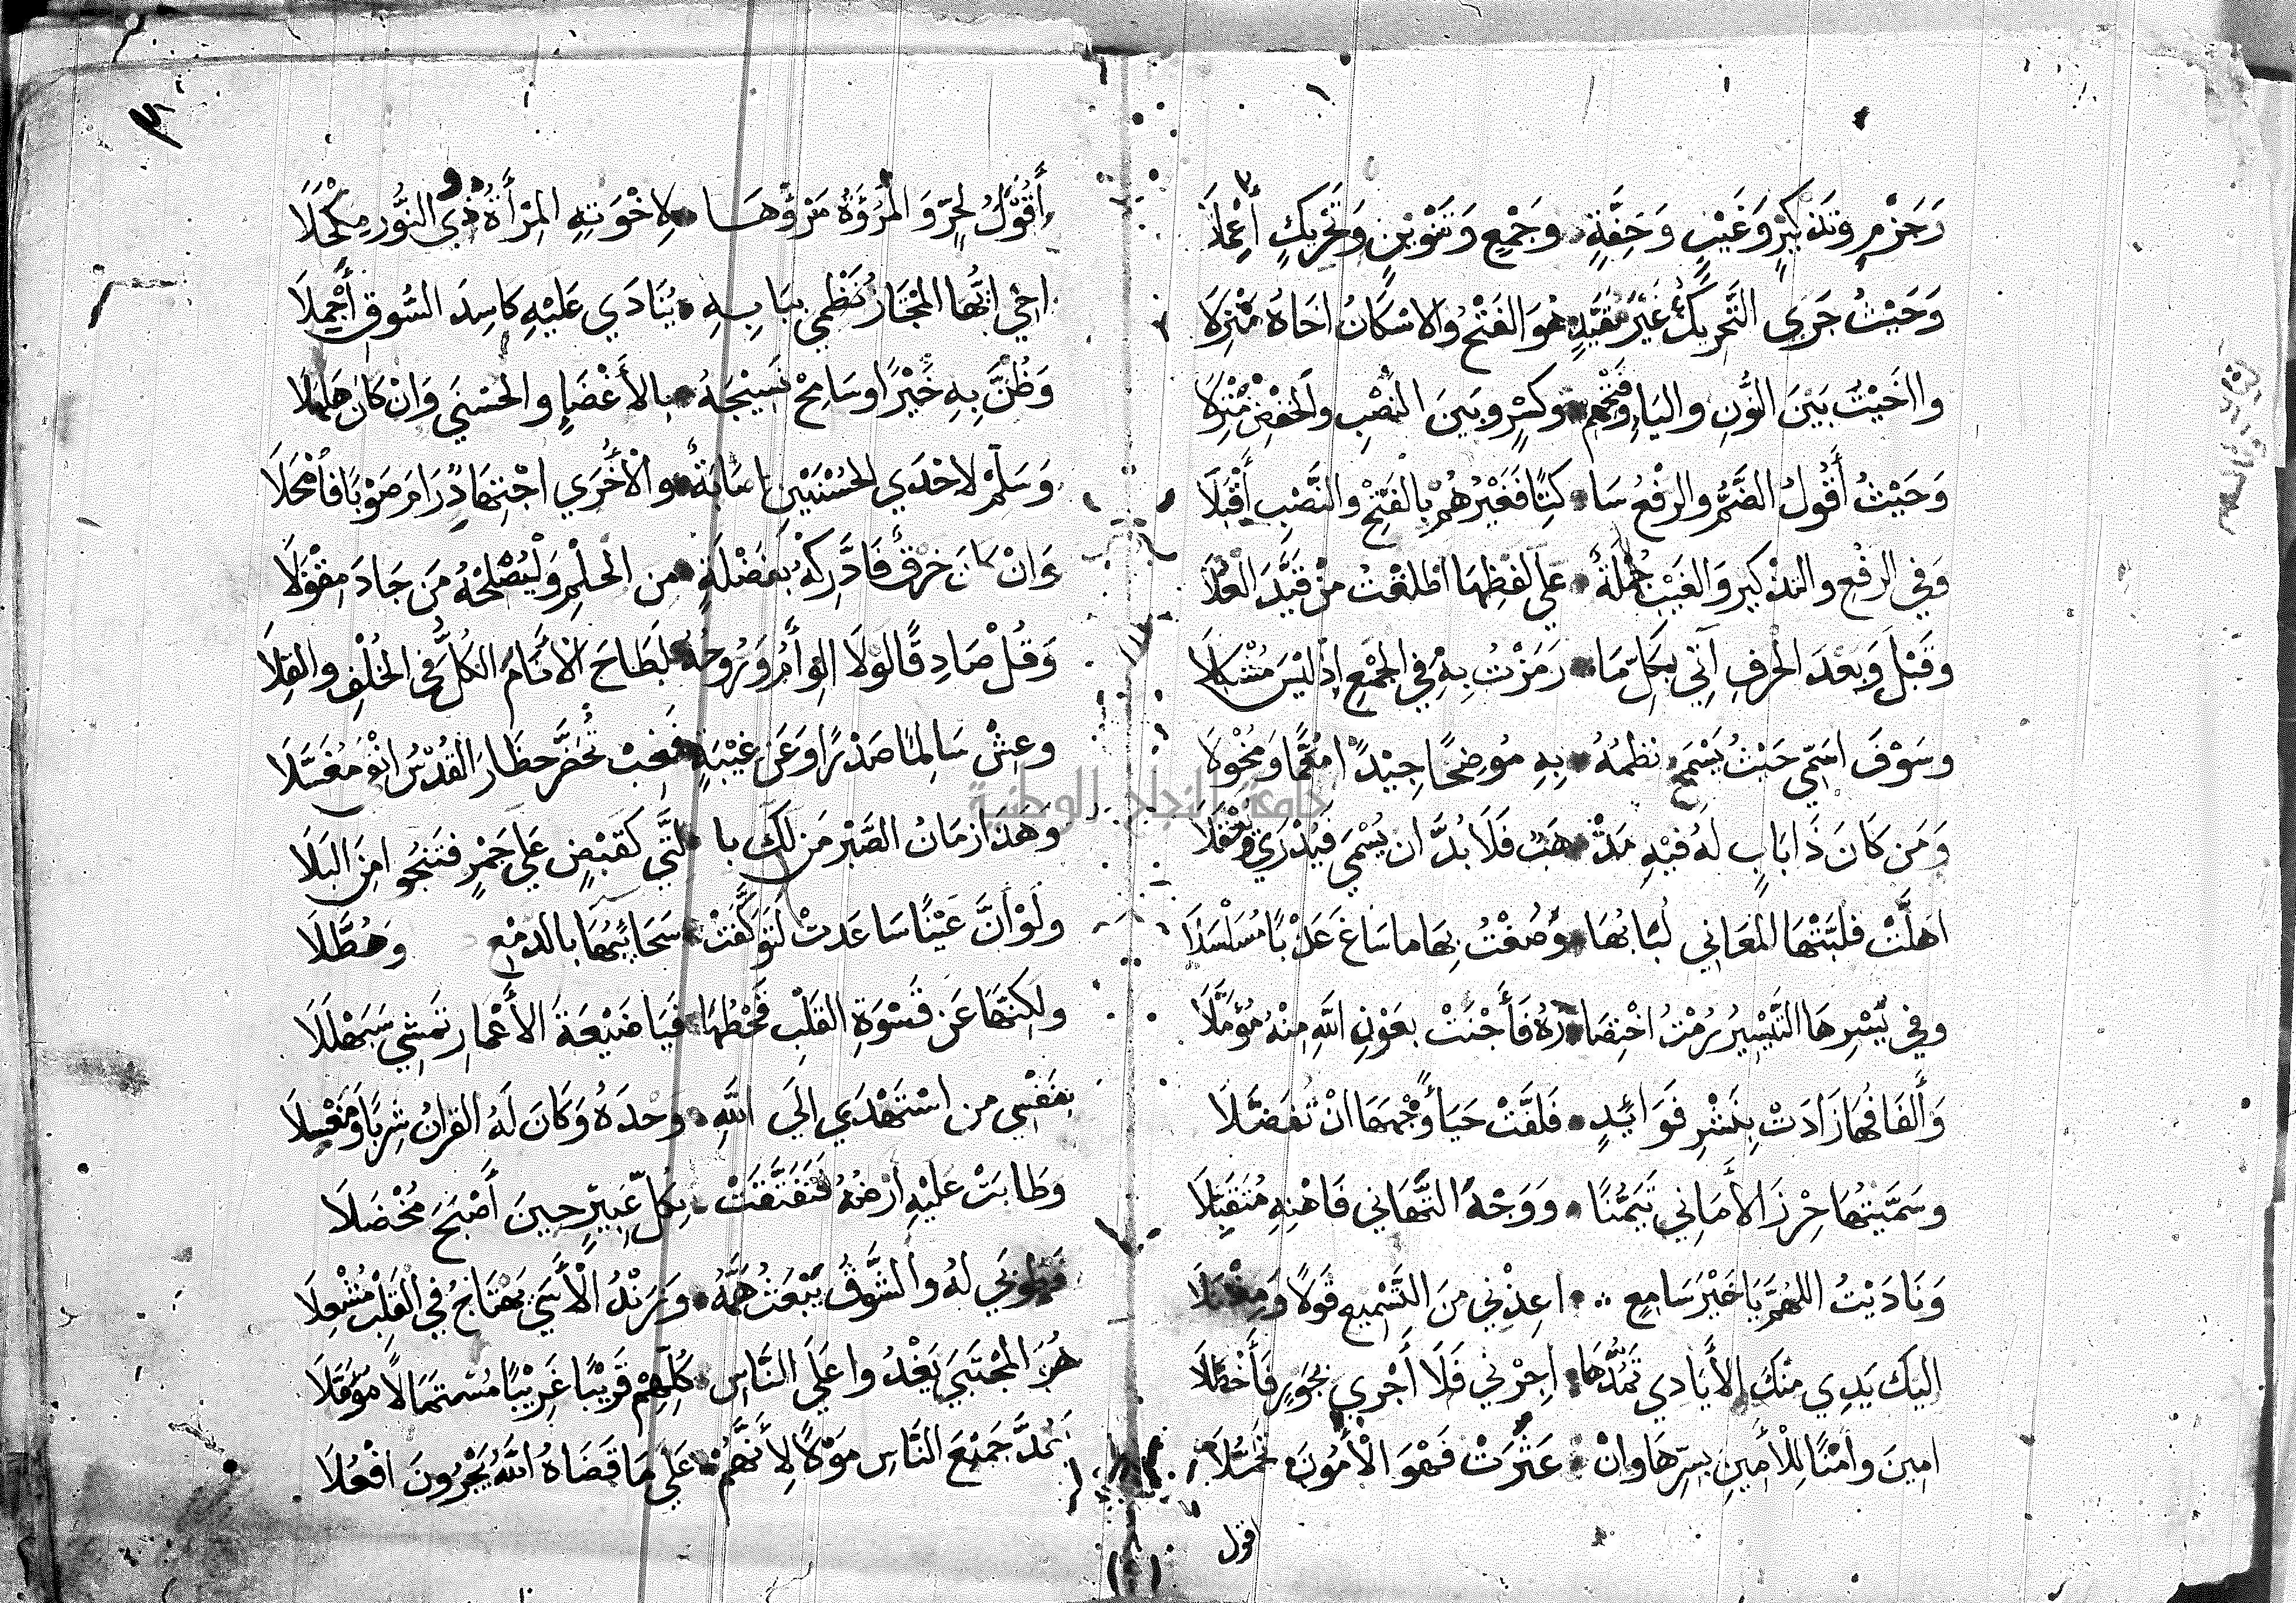 وَجَزْمٍ وَتَذْكِيرٍ وَغَيْبٍ وَخِفَّةٍ وَجَمْعٍ وَتَنْوِينٍ وَتَحْرِيكٍ أُعْمِلَا
وَحَيْثُ جَرَى التَّحْرِيكُ غَيْرَ مُقَيَّدٍ هُوَ الفَتْحُ وَالاسْكَانُ اخَاهُ مَنْزِلَا
وَاآخَيْتُ بَيْنَ النُّونِ وَاليَاءِ وَفَتْحِهِمْ وَكَسْرٍ وَبَيْنَ النَّصْبِ وَالخَفْضِ مُنْزِلَا
وَحَيْثُ أَقُولُ الضَّمُّ وَالرَّفْعُ سَاكِتًا فَغَيْرُهُمْ بِالفَتْحِ وَالنَّصْبِ أَقْبَلَا
وَفِي الرَّفْعِ وَالتَّذْكِيرِ وَالغَيْبِ جُمْلَةٌ عَلَى لَفْظِهَا اطْلَقْتُ مَنْ قَيَّدَ العُلَا
وَقَبْلَ وَبَعْدَ الحَرْفِ آتِي بِكُلِّ مَا رَمَزْتُ بِهِ فِي الجَمْعِ اِذْ لَيْسَ مُشْكِلَا
وَسَوْفَ اسَمِّي حَيْثُ يَسْمَحُ نَظْمُهُ بِهِ مُوضِحًا جِيْدًا مُعَمًّا وَمُخْوَلَا
وَمَنْ كَانَ ذَا بَابٍ لَهُ فِيْهِ مَذْهَبٌ فَلَا بُدَّ ان يُسْمَى فَيُدْرَي وَيُعْقَلَا
اهَلَّتْ فَلَبَّتْهَا المَعَانِي لُبَابُهَا وَصُغْتُ بِهَا مَا سَاغَ عَذْبًا مُسَلْسَلَا
وَفِي يُسْرِهَا التَّيْسِيرُ رُمْتُ اخْتِصَارَهُ فَأَجْنَتْ بِعَوْنِ اللَّهِ مِنْهُ مُؤَمَّلَا
وَأَلْفَافُهَا زَادَتْ بِنَشْرِ فَوَائِدٍ فَلَفَّتْ حَيَاءً وَجْهَهَا انْ تُفَضَّلَا
وَسَمَّيْتُهَا حِرْزَ الأَمَانِي تَيَمُّنًا وَوَجْهَ التَّهَانِي فَاهْنِهِ مُتَقَبِّلَا
وَنَادَيْتُ اللَّهُمَّ يَا خَيْرَ سَامِعٍ اعِذْنِي مِنَ التَّسْمِيعِ قَوْلًا وَمِفْعَلَا
اليْكَ يَدِي مِنْكَ الأَيَادِي تَمُدُّهَا اجِرْنِي فَلَا أَجْرِي بِجَوْرٍ فَأَخْطَلَا
امِينَ وَأَمْنًا لِلْأَمِينِ بِسِرِّهَا وَانْ عَثَرَتْ فَهْوَ الْأَمُونُ تَحَمُّلَا
اقول
أَقُولُ لِحُرٍّ وَالمُرُوْءَةُ مَرْؤُهَا لِاخْوَتِهِ المِرْأَةُ ذُو النُّورِ مِكْحَلَا
اخِي ايُّهَا المُجْتَازُ نَظْمِي بِبَابِهِ يُنَادَي عَلَيْهِ كَاسِدَ السُّوقِ أَجْمِلَا
وَظُنَّ بِهِ خَيْرًا وَسَامِحْ نَسِيْجَهُ بِالأَغْضَاءِ وَالحُسْنَي وَانْ كَانَ هَلْهَلَا
وَسَلِّمْ لِاحْدَي الحُسْنَيَيْنِ اصَابَةٌ وَالْأُخْرَي اجْتِهَادٌ رَامَ صَوْبًا فَأَمْحَلَا
وَانْ كَانَ خَرْقٌ فَادَّرِكْهُ بِفَضْلَةٍ مِنَ الحِلْمِ وَلْيُصْلِحْهُ مَن جَادَ مِقْوَلَا
وَقُلْ صَادِقًا لَوْلَا الوِئَامُ وَرُوحُهُ لَطَاحَ الأَنَامُ الكُلُّ فِي الخُلْفِ وَالقِلَا
وَعِشْ سَالِمًا صَدْرًا وَعَنْ غِيْبَةٍ فَغِبْ تُحَضَّرْ حِظَارَ القُدْسِ انْقَى مُغَسَّلَا
وَهَذَا زَمَانُ الصَّبْرِ مَن لَكَ بِالَّتِي كَقَبْضٍ عَلَي جَمْرٍ فَتَنْجُو امِنَ البَلَا
وَلَوْ أَنَّ عَيْنًا سَاعَدَتْ لَتَوَكَّفَتْ سَحَائِبُهَا بِالدَّمْعِ وَهُطَّلَا
وَلَكِنَّهَا عَنْ قَسْوَةِ القَلْبِ قَحْطُهَا فَيَا ضَيْعَةَ الأَعْمَارِ تَمْشِي سَبَهْلَلَا
بِنَفْسِي مَن اسْتَهْدَي الَي اللَّهِ وَحْدَهُ وَكَانَ لَهُ القُرَانُ شِرْبًا وَمَغْسِلَا
وَطَابَتْ عَلَيْهِ أَرْضُهُ فَتَفَتَّقَتْ بِكُلِّ عَبِيْرٍ حِينَ أَصْبَحَ مُخْضَلَا
فَطُوبَي لَهُ وَالشَّوْقُ يَبْعَثُ هَمَّهُ وَزَنْدُ الْأَسَي يَهْتَاجُ فِي القَلْبِ مُشْعِلَا
هُوَ المُجْتَبَي يَغْدُو ا عَلَي النَّاسِ كُلِّهِمْ قَرِيْبًا غَرِيْبًا مُسْتَمَالًا مُؤَمَّلَا
يَعُدُّ جَمِيْعَ النَّاسِ مَوْلًا لِأَنَّهُمْ عَلَي مَا قَضَاهُ اللَّهُ يُجْرُونَ افْعُلَا
جامعة النجاح الوطنية